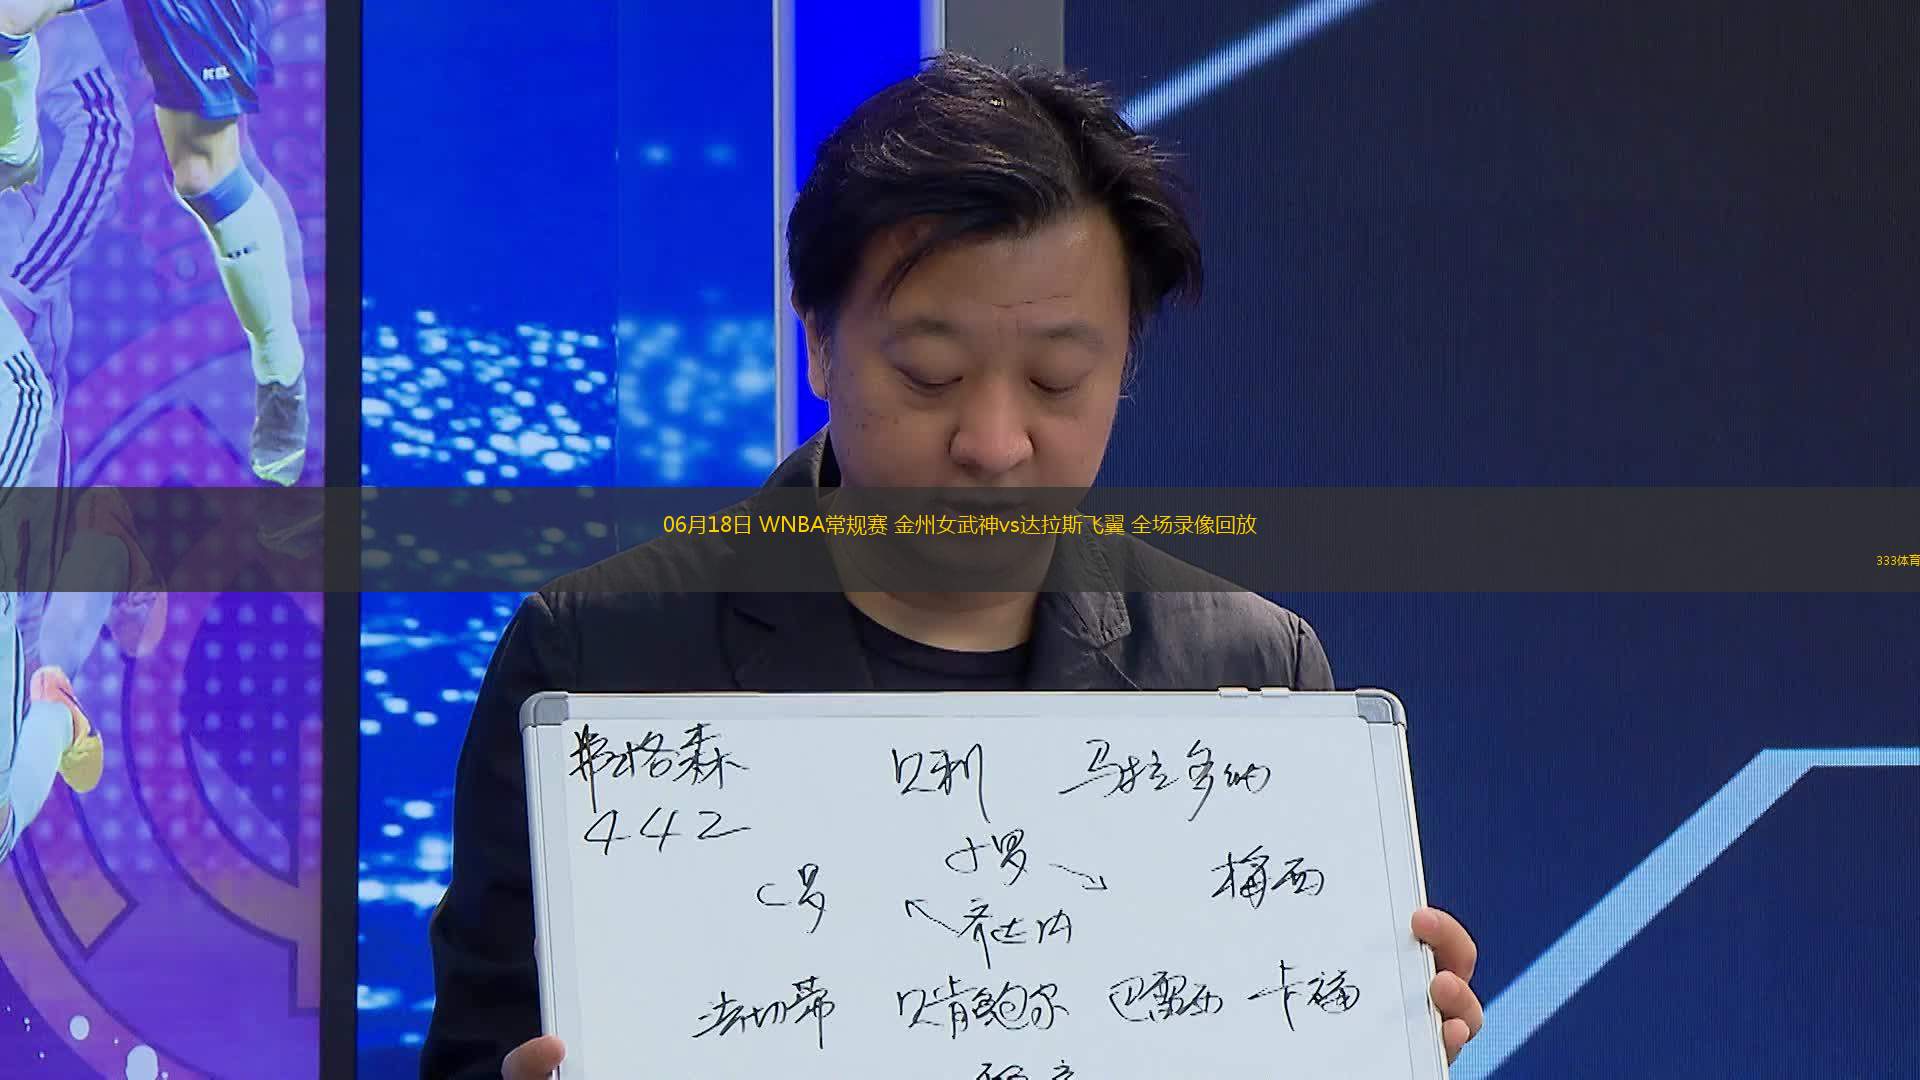 06月18日 WNBA常规赛 金州女武神vs达拉斯飞翼 全场录像回放
333体育
弗格森 贝利 马拉多纳
442
小罗
C罗 梅西
齐达内
法切蒂 贝肯鲍尔 巴雷西 卡福